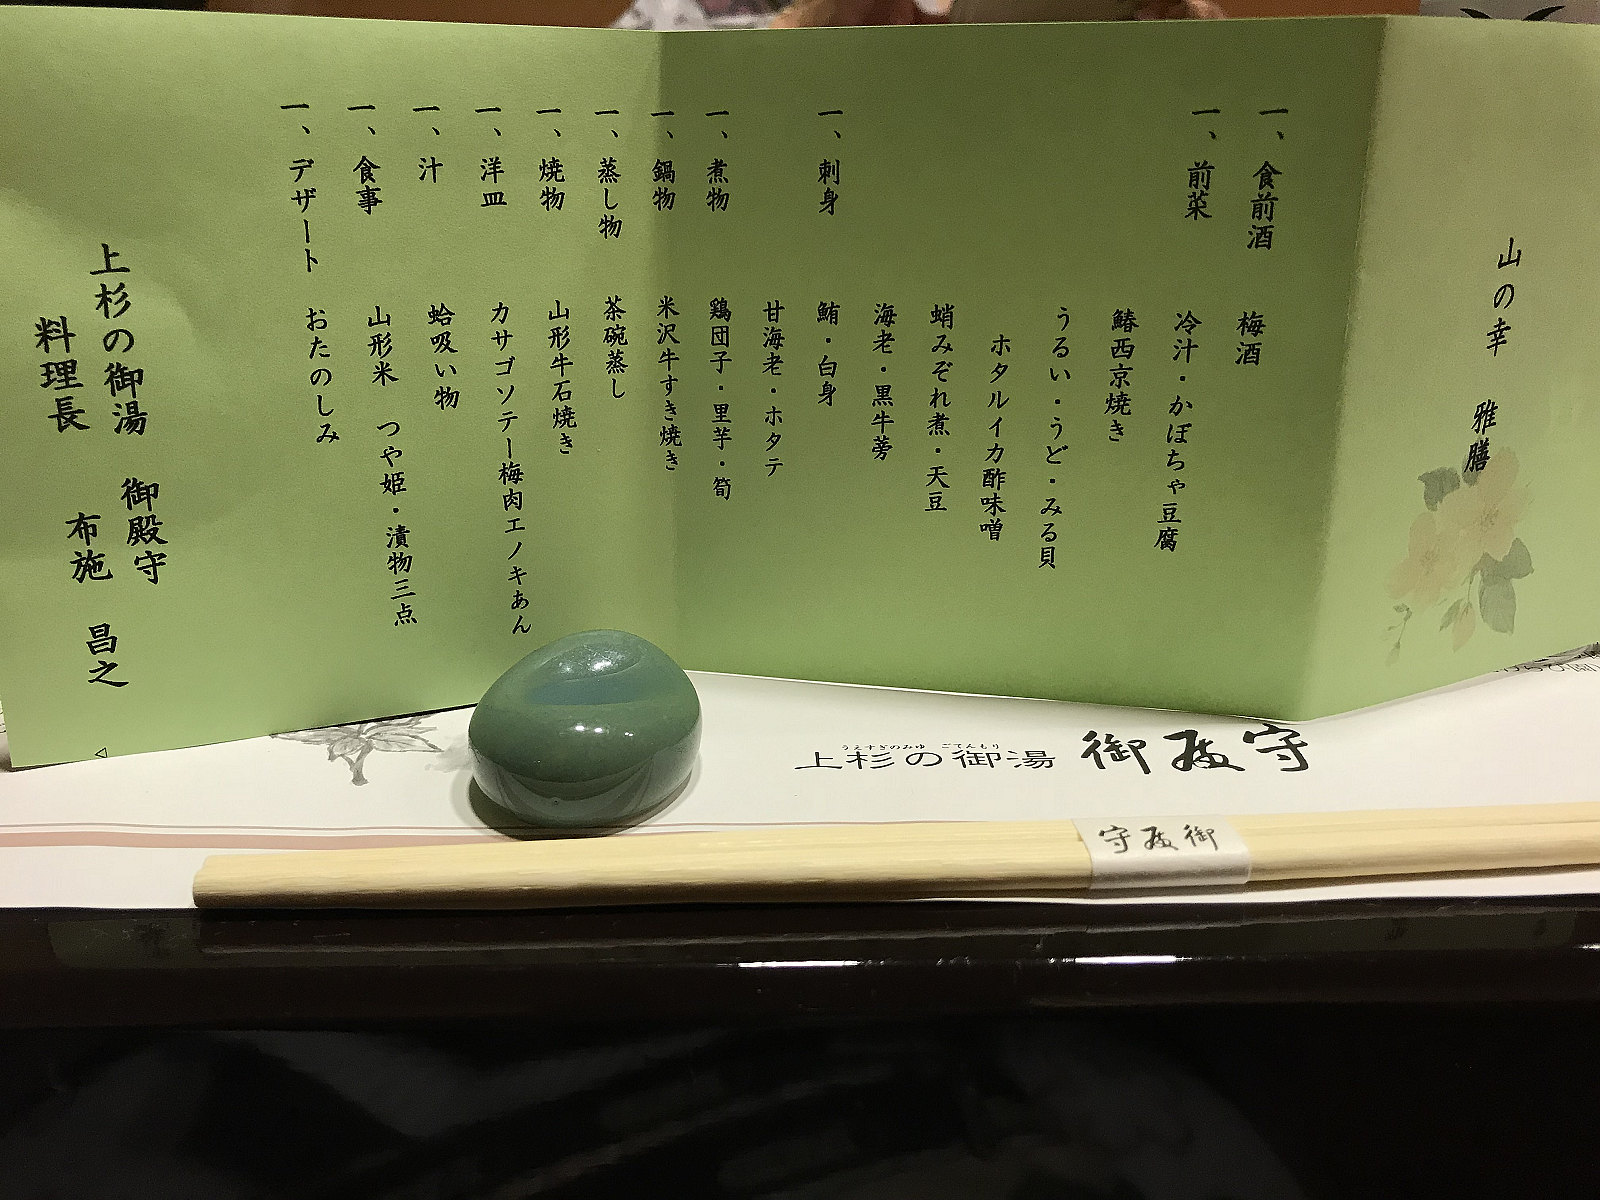 山の幸　雅膳
一、食前酒　梅酒
一、前菜　冷汁・かぼちゃ豆腐
鰆西京焼き
うるい・うど・みる貝
ホタルイカ酢味噌
蛸みぞれ煮・天豆
海老・黒牛蒡
一、刺身　鮪・白身
甘海老・ホタテ
一、煮物　鶏団子・里芋・筍
一、鍋物　米沢牛すき焼き
一、蒸し物　茶碗蒸し
一、焼物　山形牛石焼き
一、洋皿　カサゴソテー梅肉エノキあん
一、汁　蛤吸い物
一、食事　山形米　つや姫・漬物三点
一、デザート　おたのしみ
上杉の御湯　御殿守
料理長　布施　昌之
うえすぎのみゆ　ごてんもり
上杉の御湯 御殿守
御殿守